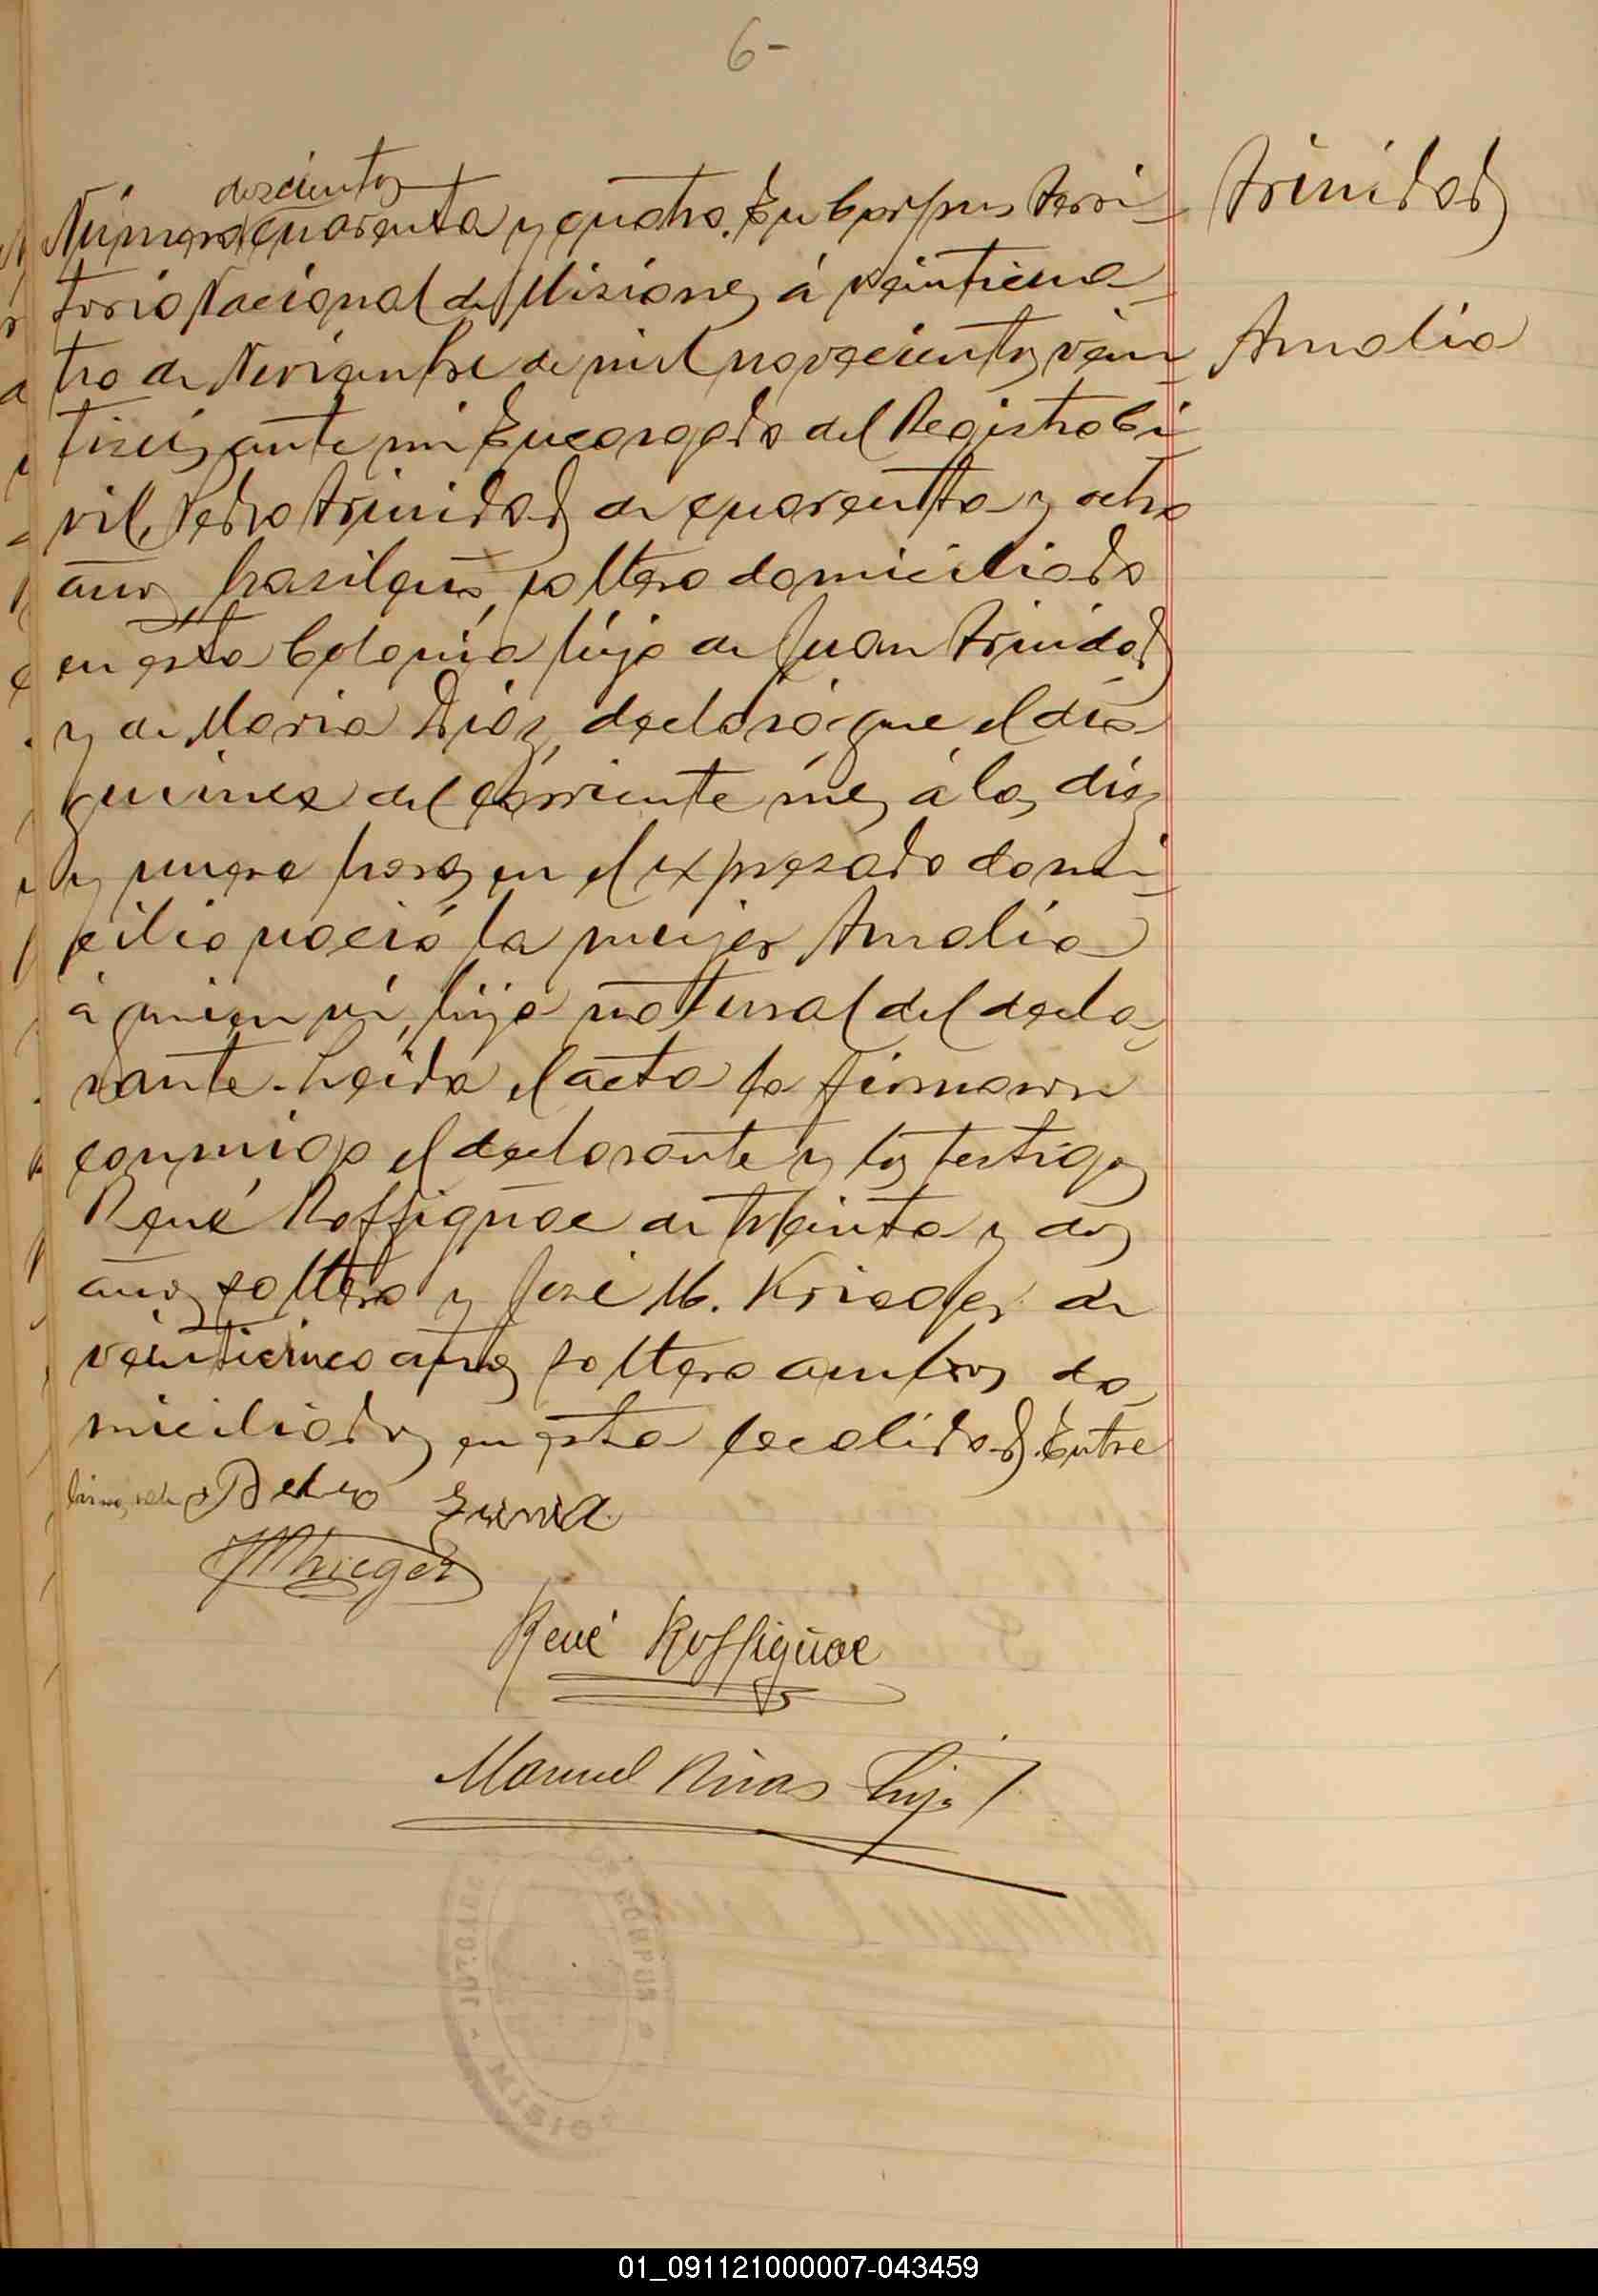 6-
Trinidad
Amalia
doscientos
Número cuarenta y cuatro. En Corpus Terri-
torio Nacional de Misiones á veinticua-
tro de Noviembre de mil novecientos vein
tiseis, ante mi Encargado del Registro Ci-
vil, Pedro Trinidad de cuarenta y ocho
años, brasileño, soltero domiciliado
en esta Colonia hijo de Juan Trinidad
y de Maria Diaz, declaró que el dia
quince del corriente mes á las diez
y nueve horas en el expresado domi-
cilio nació la mujer Amalia
á quien ví, hija natural del decla-
rante. Leida el acta la firmaron
conmigo el declarante y los testigos
René Roffignac de treinta y dos
años soltero y José M. Krieger de
veinticinco años soltero ambos do-
miciliados en esta localidad. Entre
Pedro
JMKrieger
René Roffignac
Manuel Rivas hijo
JUZGADO DE CORPUS
MISIO
01_091121000007-043459